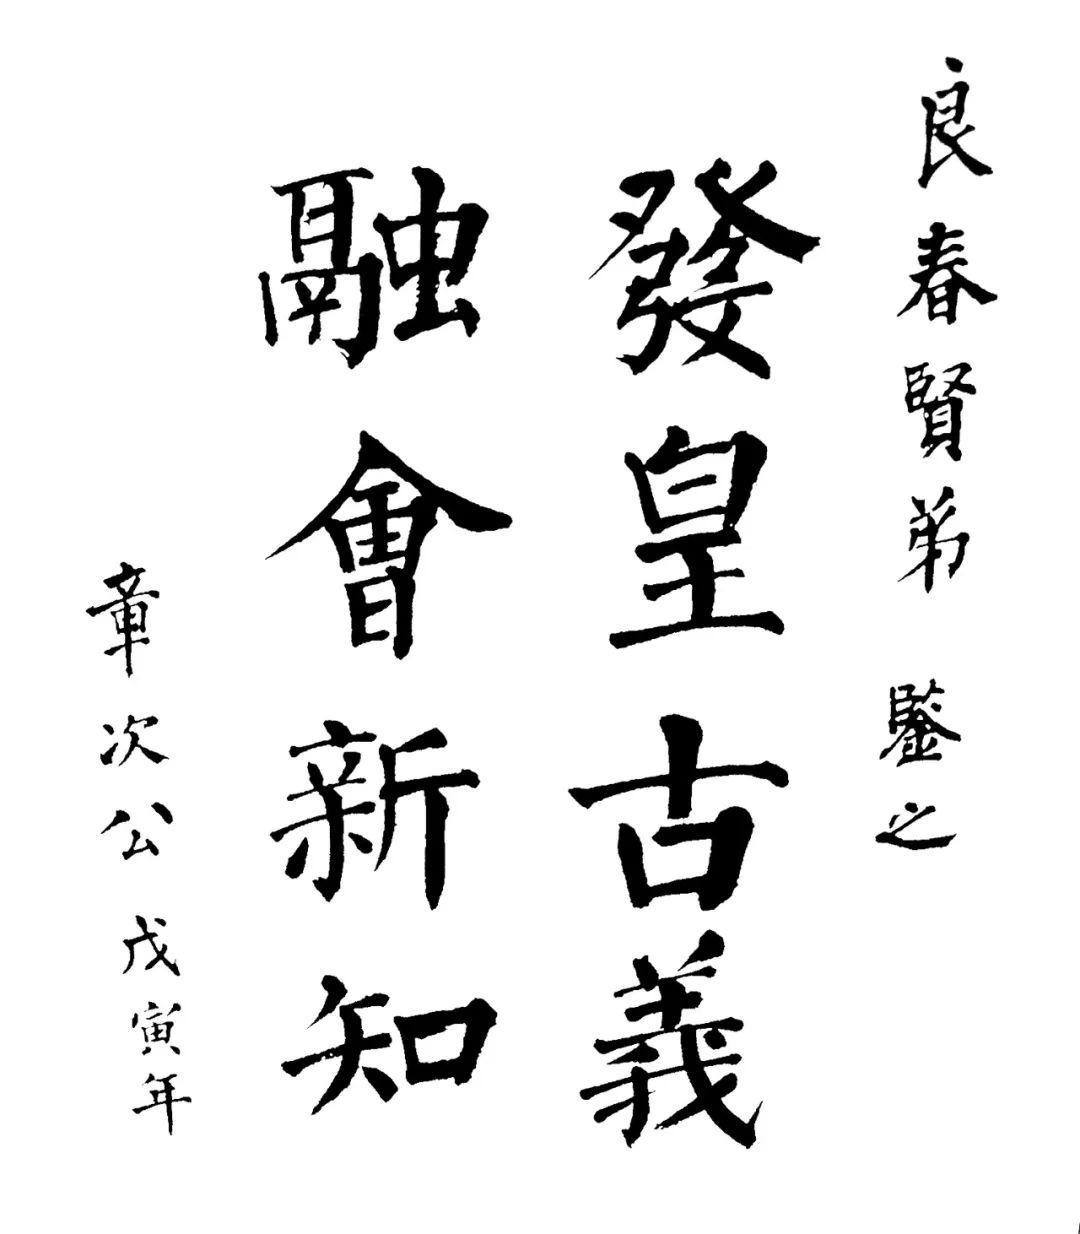 良春賢弟 鑒之
發皇古義
融會新知
章次公 戊寅年